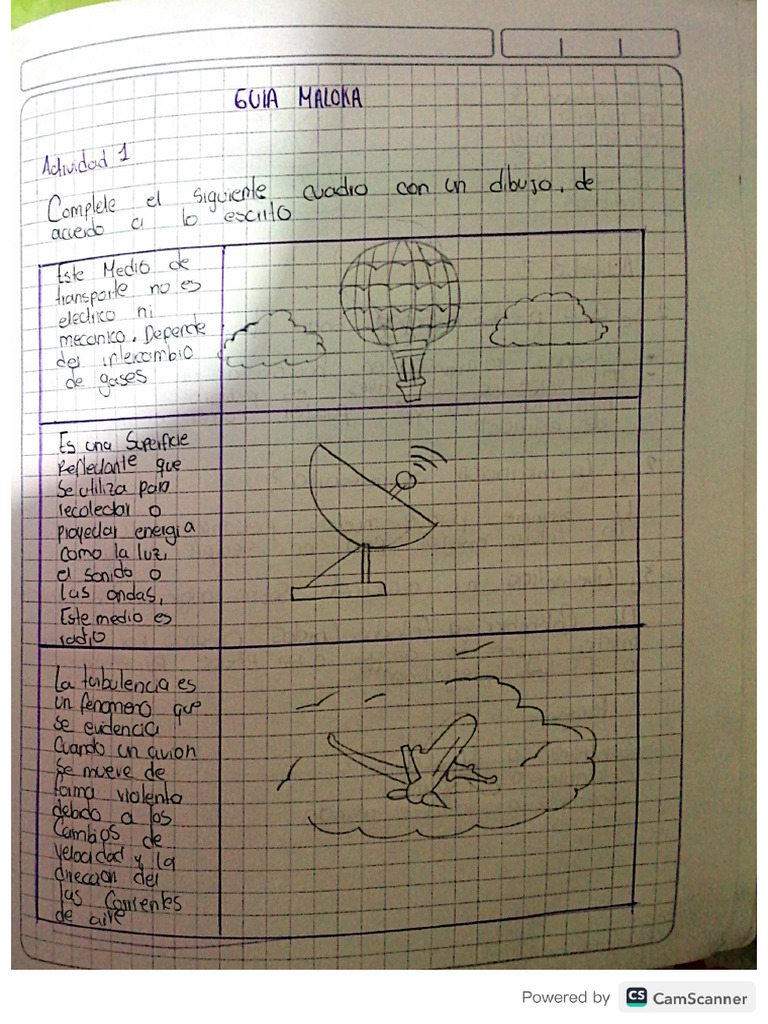 GUIA MALOKA
Actividad 1
Complete el siguiente cuadro con un dibujo, de
acuerdo a lo escrito
Este Medio de
transporte no es
electrico ni
mecanico. Depende
del intercambio
de gases
Es una Superficie
Reflectante que
se utiliza para
recolectar o
proyectar energia
como la luz,
el sonido o
las ondas,
Este medio es
radio
La turbulencia es
un fenomeno que
se evidencia
cuando un avion
se mueve de
forma violenta
debido a los
Cambios de
velocidad y la
direccion del
las Corrientes
de aire
Powered by CS CamScanner